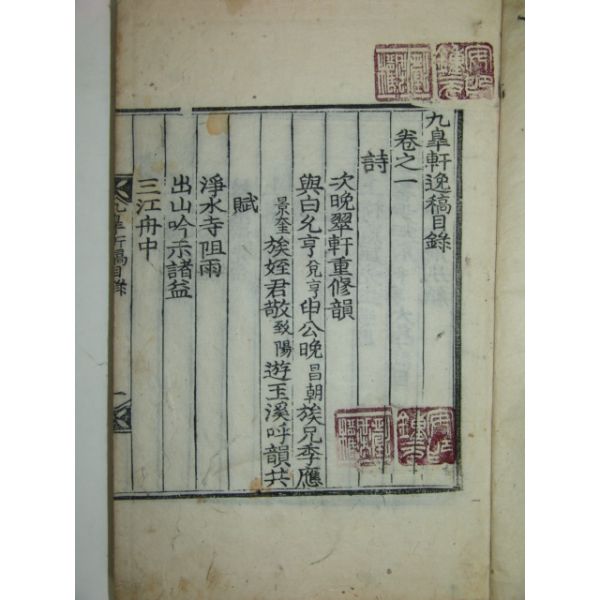 九皐軒逸稿目錄
卷之一
詩
次晚翠軒重修韻
與白允亨兌亨申公晚昌朝族兄季應
景奎族姪君敬致陽遊玉溪呼韻共
賦
淨水寺阻雨
出山吟示諸益
三江舟中
九皐軒稿目錄